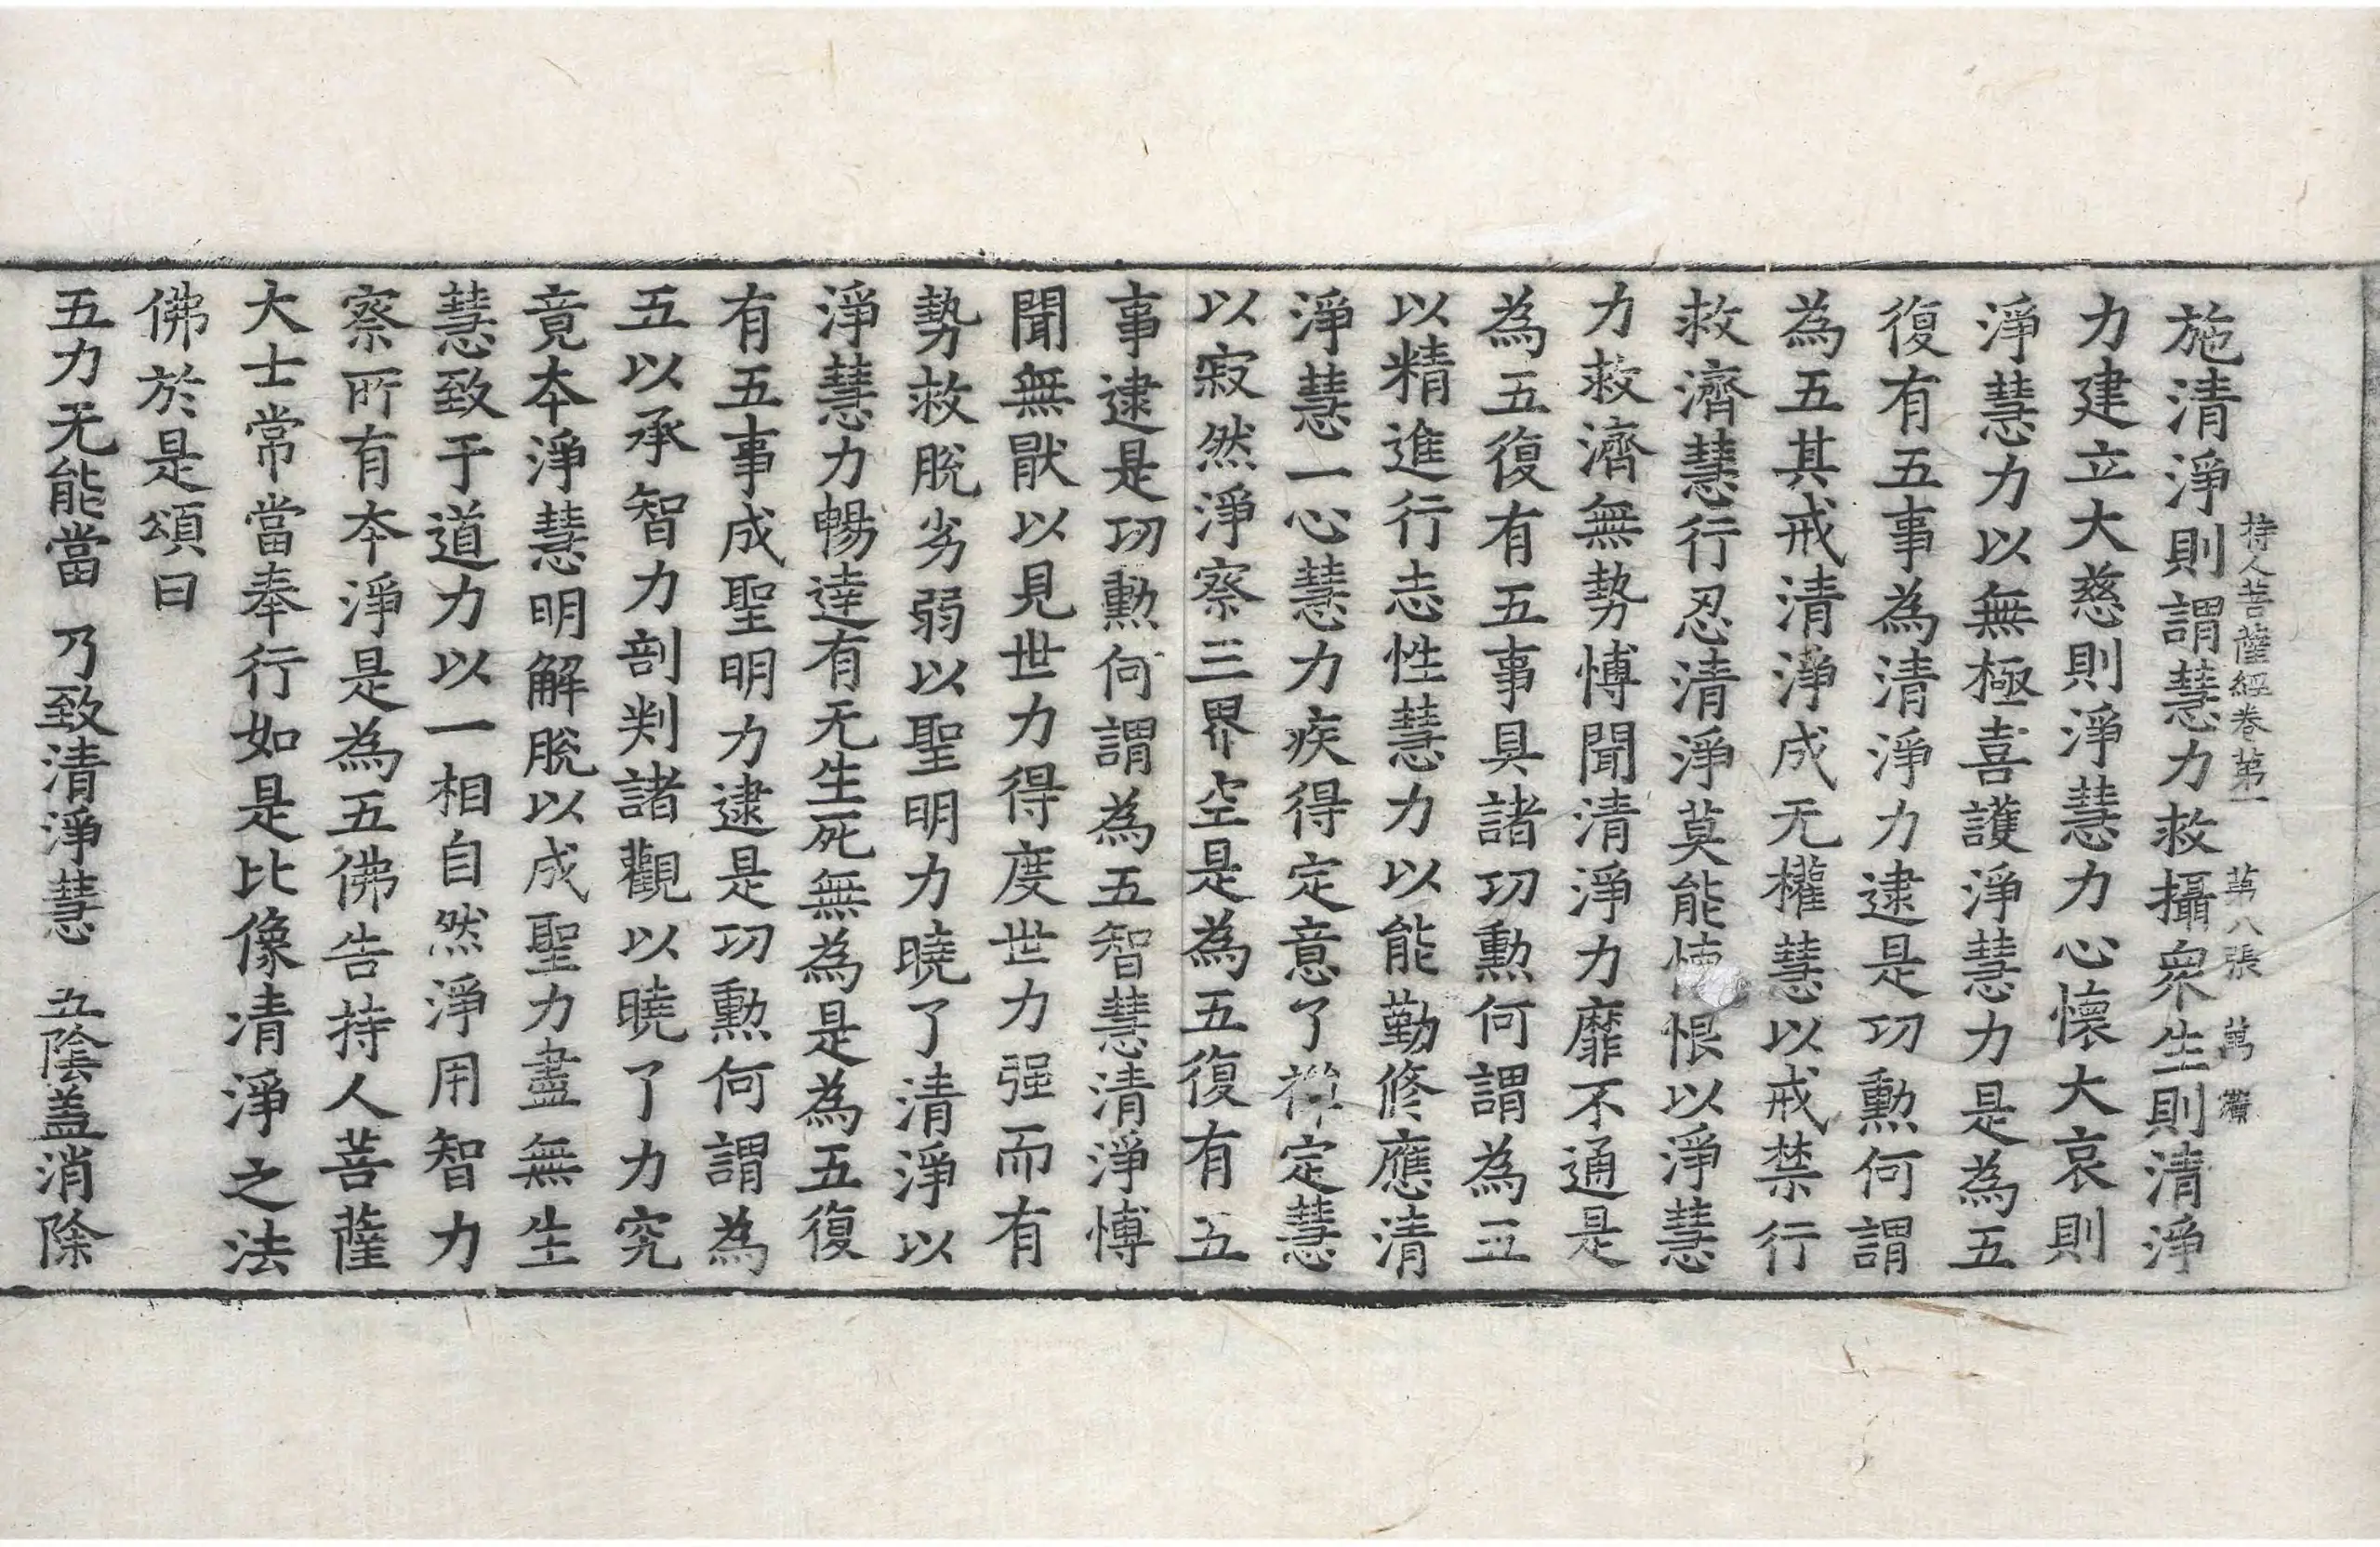 持人菩薩經卷第一 第八張 萬
施清淨則謂慧力救攝衆生則清淨
力建立大慈則淨慧力心懷大哀則
淨慧力以無極喜護淨慧力是為五
復有五事為清淨力逮是功勲何謂
為五其戒清淨成无權慧以戒禁行
救濟慧行忍清淨莫能恨以淨慧
力救濟無勢愽聞清淨力靡不通是
為五復有五事具諸功勲何謂為五
以精進行志性慧力以能勤修應清
淨慧一心慧力疾得定意了禪定慧
以寂然淨察三界空是為五復有五
事逮是功勲何謂為五智慧清淨愽
聞無猒以見世力得度世力强而有
勢救脫劣弱以聖明力曉了清淨以
淨慧力暢達有无生死無為是為五復
有五事成聖明力逮是功勲何謂為
五以承智力剖判諸觀以曉了力究
竟本淨慧明解脫以成聖力盡無生
慧致于道力以一相自然淨用智力
察所有本淨是為五佛告持人菩薩
大士常當奉行如是比像清淨之法
佛於是頌曰
五力无能當 乃致清淨慧 五陰盖消除